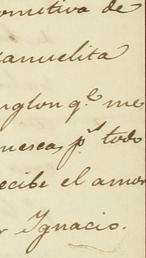 omitiva de
anuelita
nglon q.e me
nescas, p.r todo
ecibe el amor
r Ignacio.